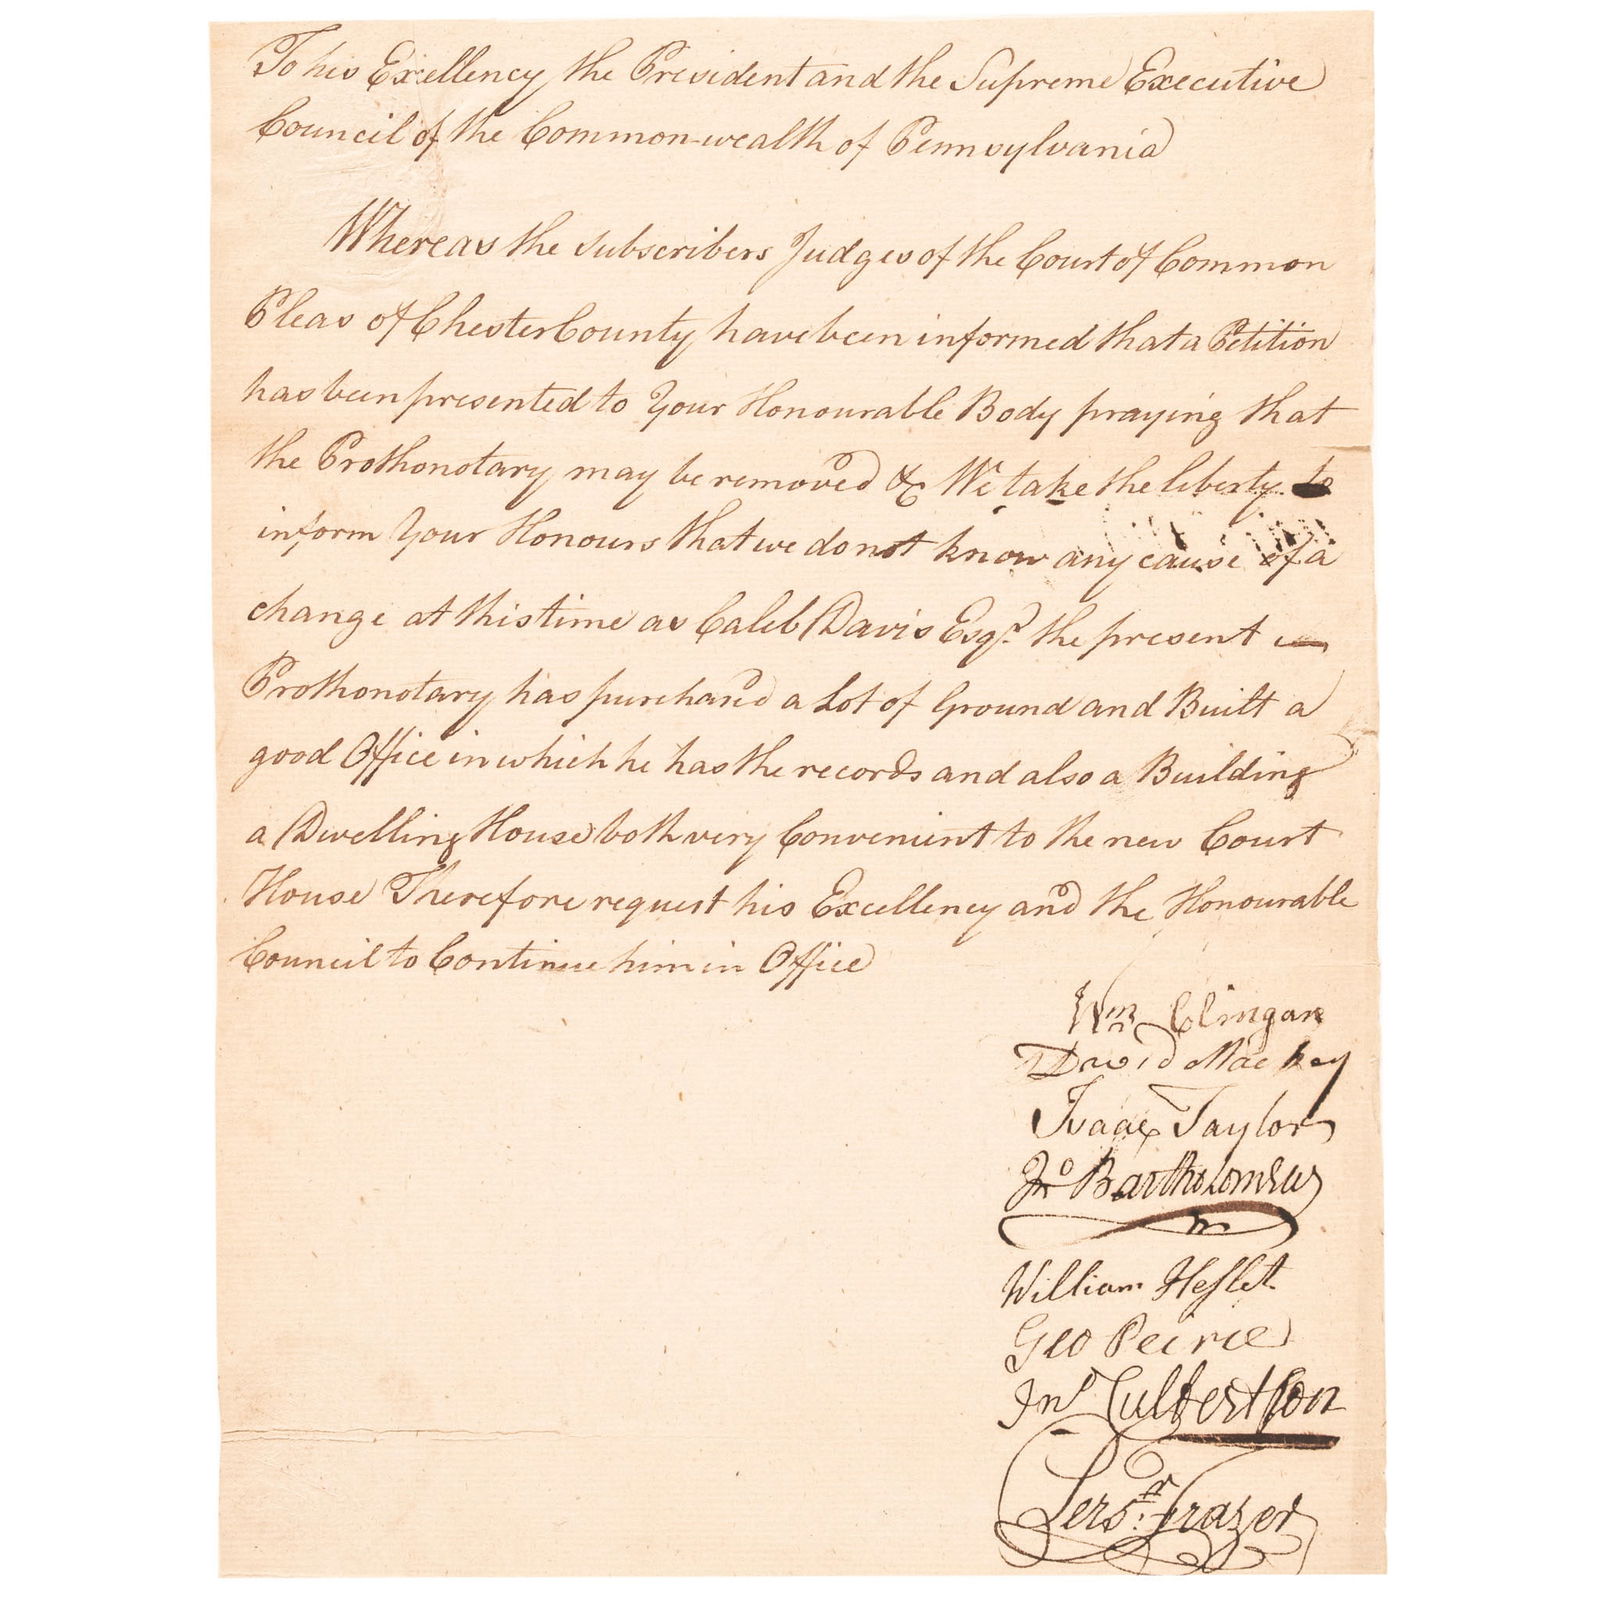 To his Exellency the President and the Supreme Executive
Council of the Common-wealth of Pennsylvania
Whereas the subscribers Judges of the Court of Common
Pleas of Chester County have been informed that a Petition
has been presented to Your Honourable Body praying that
the Prothonotary may be removed & We take the liberty to
inform Your Honours that we do not know any cause of a
change at this time as Caleb Davis Esqr. the present
Prothonotary has purchased a Lot of Ground and Built a
good Office in which he has the records and also a Building
a Dwelling House both very Convenient to the new Court
House Therefore request his Excellency and the Honourable
Council to Continue him in Office
Wm Clingan
David Mackey
Isaac Taylor
Jno Bartholomew
William Heslet
Geo Peirce
Jno Culbertson
Persr. Frazer